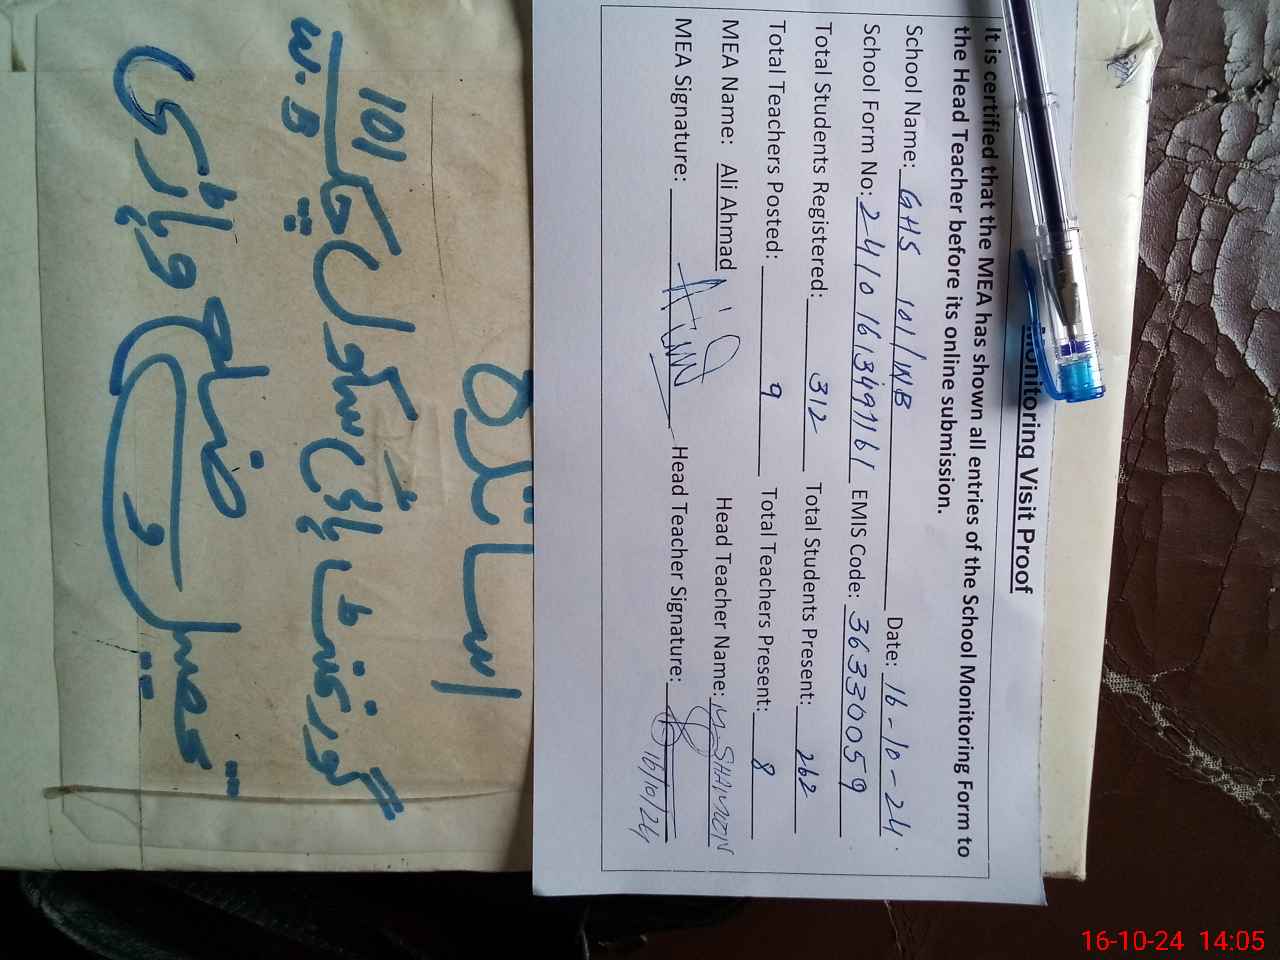 Monitoring Visit Proof
It is certified that the MEA has shown all entries of the School Monitoring Form to
the Head Teacher before its online submission.
School Name: GHS 101/WB Date: 16-10-24
School Form No: 24101613497161 EMIS Code: 36330059
Total Students Registered: 312 Total Students Present: 262
Total Teachers Posted: 9 Total Teachers Present: 8
MEA Name: Ali Ahmad Head Teacher Name:
MEA Signature: Head Teacher Signature: 16/10/24
اساتذہ
گورنمنٹ ہائی سکول چک 101
W.B
تحصیل و ضلع وہاڑی
16-10-24 14:05